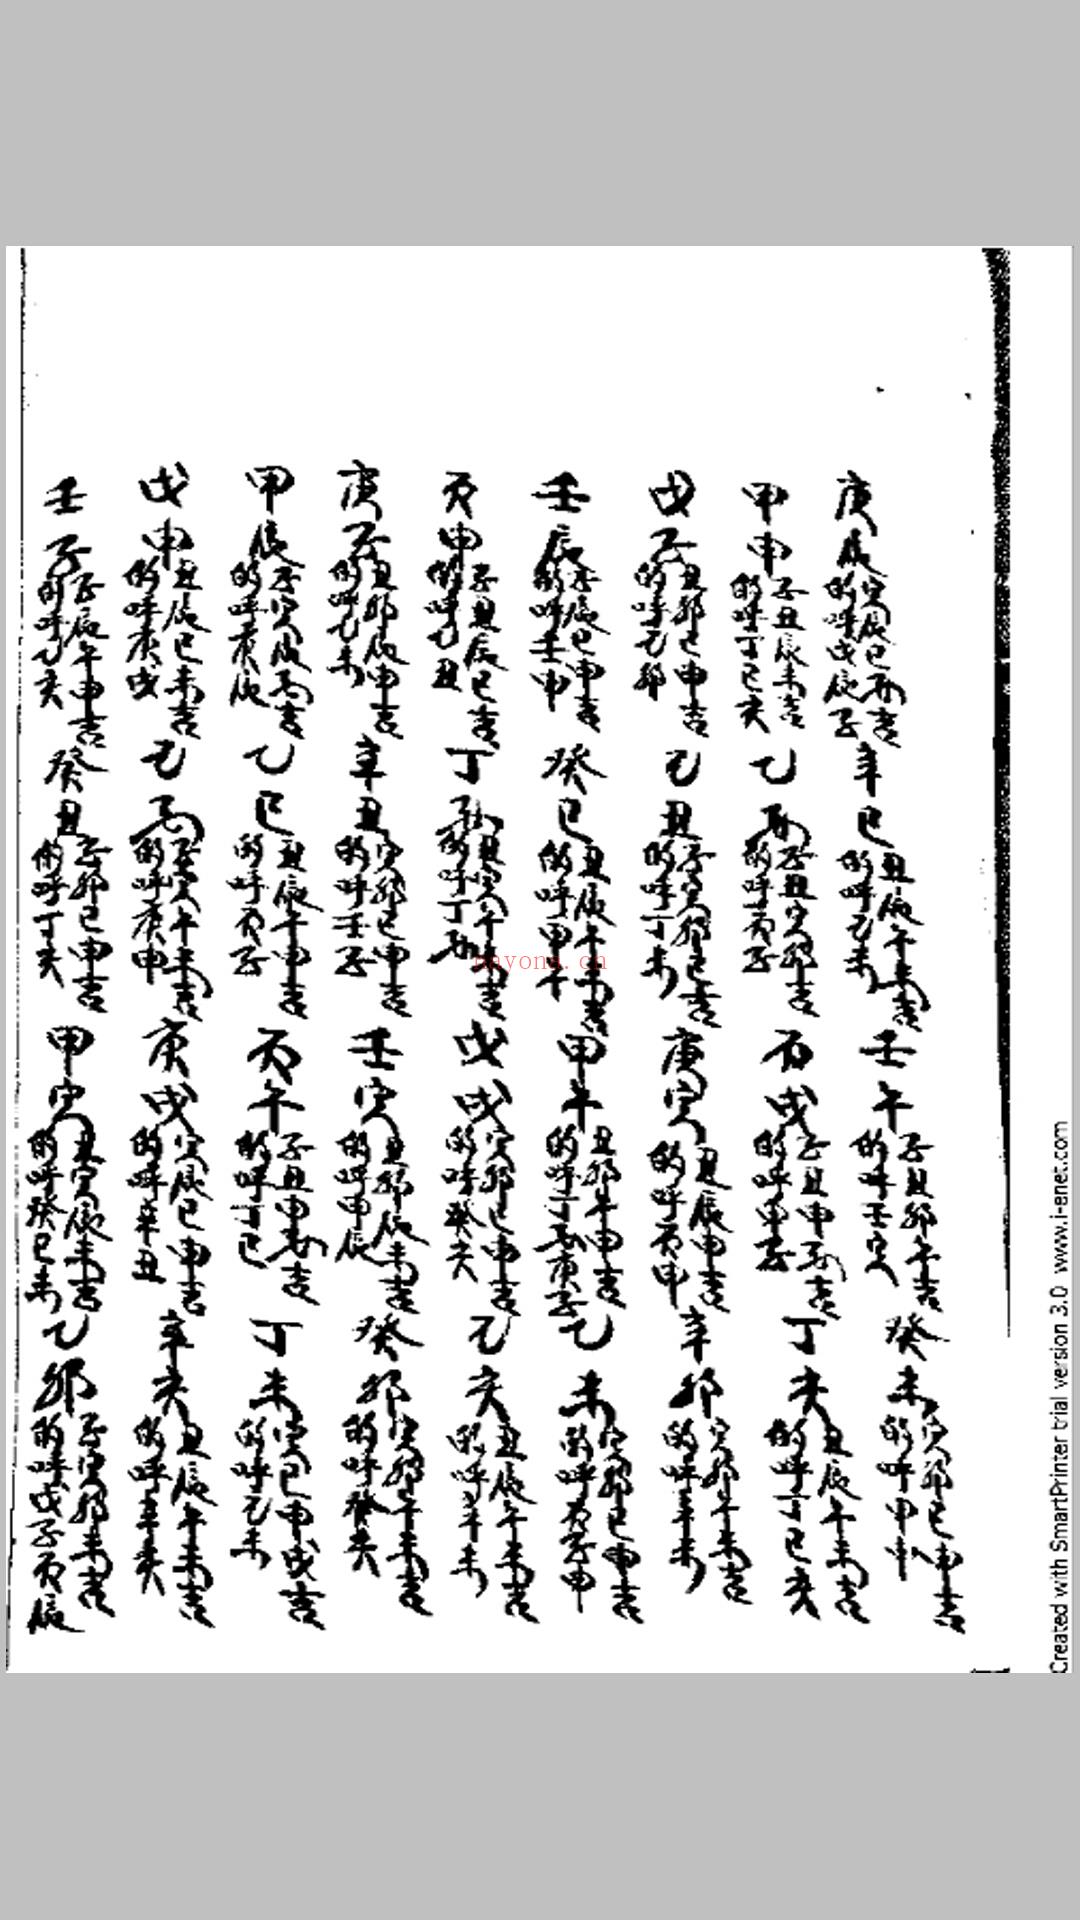 庚辰 寅辰巳酉吉 的呼戊辰子 辛巳 丑辰午未吉 的呼乙未 壬午 子丑卯午吉 的呼壬寅 癸未 寅卯巳申吉 的呼甲申
甲申 子丑辰未吉 的呼丁巳亥 乙酉 子丑寅卯吉 的呼丙子 丙戌 子丑申酉吉 的呼甲 丁亥 丑辰午未吉 的呼丁巳亥
戊子 丑卯巳申吉 的呼乙卯 己丑 子寅卯巳吉 的呼丁未 庚寅 丑辰申吉 的呼丙申 辛卯 寅卯午未吉 的呼辛未
壬辰 子辰巳申吉 的呼壬申 癸巳 丑辰午未吉 的呼甲午 甲午 丑卯午申吉 的呼丁酉庚子 乙未 寅卯巳申吉 的呼丙子申
丙申 子丑辰巳吉 的呼乙丑 丁酉 丑寅午吉 的呼丁酉 戊戌 寅卯巳申吉 的呼癸亥 己亥 丑辰午未吉 的呼辛未
庚子 丑卯辰申吉 的呼乙未 辛丑 寅卯巳申吉 的呼壬子 壬寅 丑卯辰未吉 的呼甲辰 癸卯 寅卯午未吉 的呼癸亥
甲辰 子寅辰酉吉 的呼庚辰 乙巳 丑辰午申吉 的呼丙子 丙午 子丑申酉吉 的呼丁巳 丁未 寅巳申戌吉 的呼乙未
戊申 丑辰巳未吉 的呼庚戌 己酉 子寅午未吉 的呼庚申 庚戌 寅辰巳申吉 的呼辛丑 辛亥 丑辰午未吉 的呼辛亥
壬子 子辰午申吉 的呼乙亥 癸丑 子卯巳申吉 的呼丁亥 甲寅 丑寅辰未吉 的呼癸巳未 乙卯 子寅卯未吉 的呼戊子丙辰
nayona.cn
Created with SmartPrinter trial version 3.0 www.i-enet.com